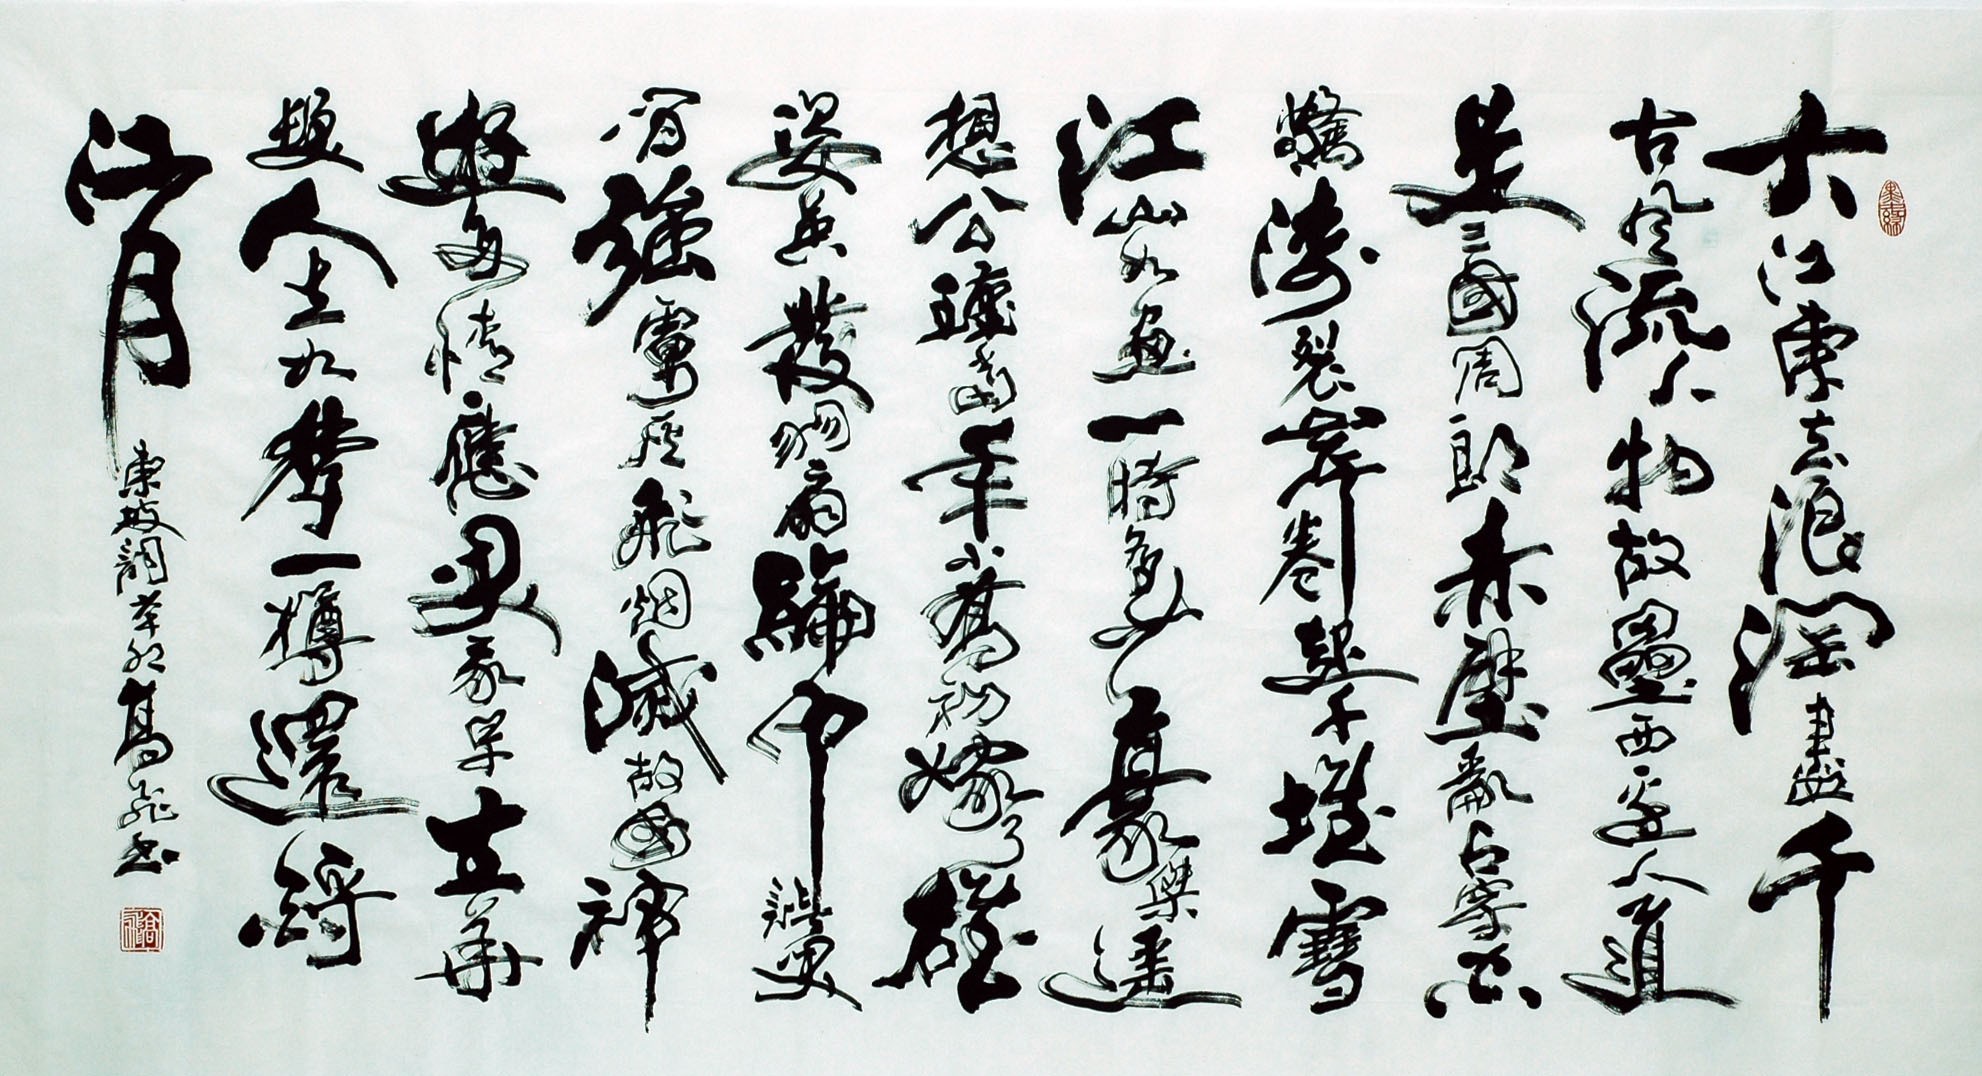 大江東去浪淘盡千
古風流人物故壘西邊人道
是三國周郎赤壁亂石穿空
驚濤裂岸卷起千堆雪
江山如畫一時多少豪傑遙
想公瑾當年小喬初嫁了雄
姿英發羽扇綸巾談笑
間強虜灰飛烟滅故國神
遊多情應笑我早生華
髮人生如夢一樽還酹
江月
東坡詞辛卯